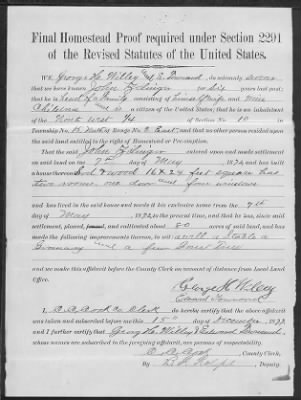 Final Homestead Proof required under Section 2291
of the Revised Statutes of the United States.
WE, George H. Willey and E. Townsend, do solemnly swear
that we have known John for six years last past;
that he is head of a family consisting of himself & wife and nine
Children and is a citizen of the United States; that he is an inhabitant
of the North west 1/4 of Section No. 10 in
Township No. 15 North of Range No. 2 East, and that no other person resided
upon the said land entitled to the right of Homestead or Pre-emption.
That the said John entered upon and made settlement
on said land on the 7th day of May, 1872, and has built
a house thereon Sod & wood 16 X 24 feet square has
two rooms one door and four windows
and has lived in the said house and made it his exclusive home from the 7th
day of May, 1872, to the present time, and that he has, since said
settlement, plowed, fenced, and cultivated about 80 acres of said land, and has
made the following improvements thereon, to wit: a well a Stable a
Granary and a few Forest Trees
we make this affidavit before the County Clerk on account of distance from Local Land
Office.
George H. Willey
Edward Townsend
I, Co Clerk do hereby certify that the above affidavit
was taken and subscribed before me this 15th day of November 1877
and I further certify that George H. Willey & Edward Townsend
whose names are subscribed to the foregoing affidavit, are persons of respectability.
County Clerk,
By Deputy.